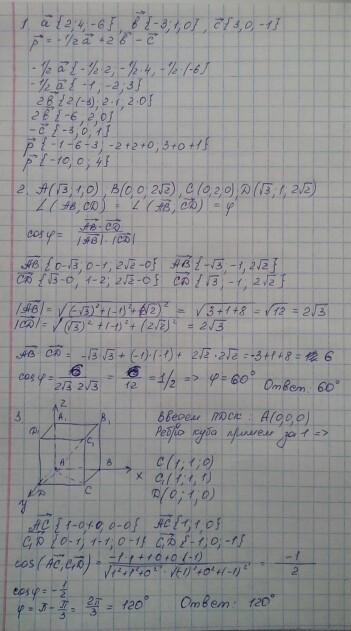 1. a⃗{2; 4; -6}, b⃗{-3; 1; 0}, c⃗{3, 0, -1}
p⃗ = -1/2 a⃗ + 2b⃗ - c⃗
-1/2 a⃗ {-1/2·2, -1/2·4, -1/2·(-6)}
-1/2 a⃗ {-1, -2; 3}
2b⃗ {2(-3), 2·1, 2·0}
2b⃗ {-6, 2, 0}
-c⃗ {-3, 0, 1}
p⃗ {-1-6-3, -2+2+0, 3+0+1}
p⃗ {-10, 0; 4}
2. A(√3, 1, 0), B(0, 0, 2√2), C(0, 2, 0), D(√3, 1, 2√2)
∠(AB, CD) = ∠(AB⃗, CD⃗) = φ
cosφ = AB⃗·CD⃗ / |AB⃗|·|CD⃗|
AB⃗ {0-√3, 0-1, 2√2-0} AB⃗ {-√3, -1, 2√2}
CD⃗ {√3-0, 1-2; 2√2-0} CD⃗ {√3, -1, 2√2}
|AB⃗| = √((-√3)²+(-1)²+(2√2)²) = √3+1+8 = √12 = 2√3
|CD⃗| = √((√3)²+(-1)²+(2√2)²) = 2√3
AB⃗ CD⃗ = -√3·√3 + (-1)·(-1) + 2√2·2√2 = -3+1+8 = 6
cosφ = 6 / 2√3·2√3 = 6/12 = 1/2 => φ = 60° Ответ: 60°
3.
z
A₁
B₁
D₁
C₁
A
B
x
D
C
y
Введем ПДСК: A(0,0,0)
Ребро куба примем за 1 =>
C(1; 1; 0)
C₁(1; 1, 1)
D(0; 1, 0)
AC⃗ {1-0, 1-0, 0-0} AC⃗ {1, 1, 0}
C₁D⃗ {0-1, 1-1, 0-1} C₁D⃗ {-1, 0, -1}
cos(AC⃗, C₁D⃗) = -1·1+1·0+0·(-1) / √1²+1²+0² · √(-1)²+0²+(-1)² = -1/2
cosφ = -1/2
φ = π - π/3 = 2π/3 = 120° Ответ: 120°